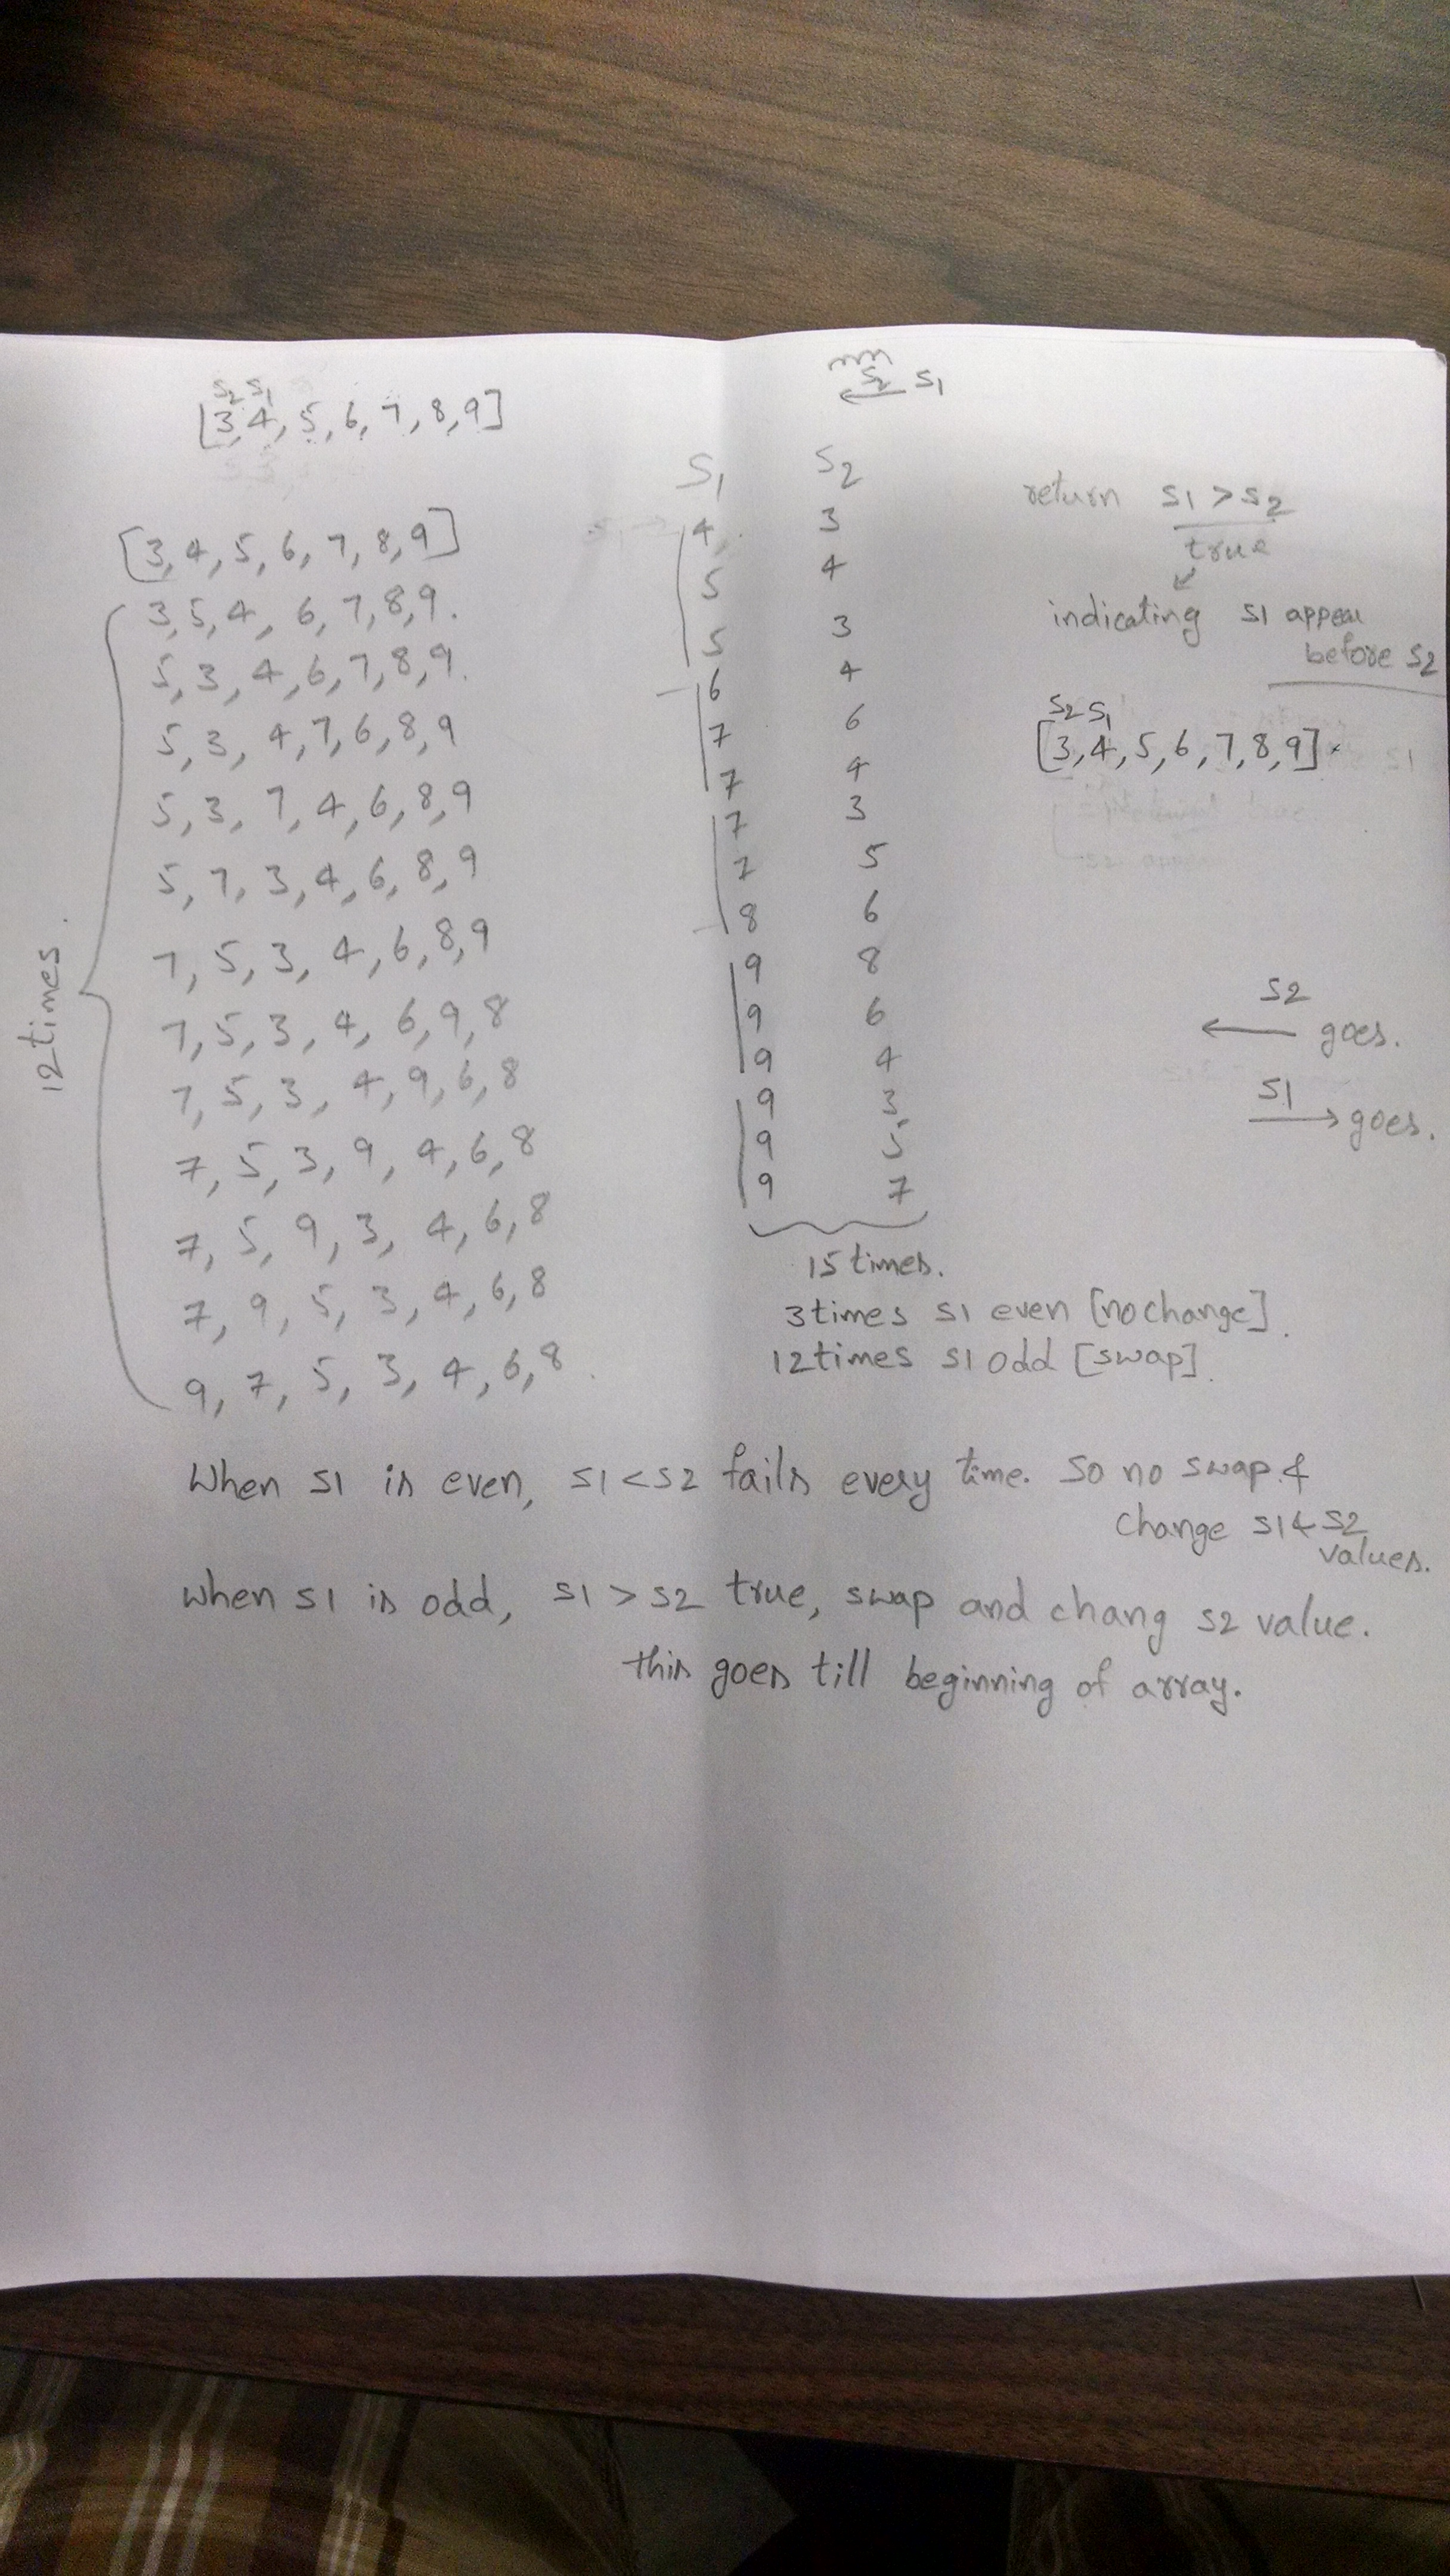 S2 S1
[3,4, 5, 6, 7, 8, 9]
[3,4, 5, 6, 7, 8, 9]
3,5,4, 6, 7,8,9.
5,3,4,6,7,8,9.
5,3, 4,7,6,8,9
5,3, 7,4,6,8,9
5,7,3,4,6,8,9
7,5,3,4,6,8,9
7,5,3,4,6,9,8
7,5,3,4,9,6,8
7,5,3,9,4,6,8
7,5,9,3,4,6,8
7,9,5,3,4,6,8
9,7,5,3,4,6,8.
12times.
S2 S1
S1 S2
4 3
5 4
5 3
6 4
7 6
7 4
7 3
7 5
8 6
9 8
9 6
9 4
9 3
9 5
9 7
15 times.
3times S1 even [no change].
12times S1 odd [swap].
return S1 > S2
true
indicating S1 appear
before S2
S2 S1
[3,4,5,6,7,8,9]
S2
← goes.
S1
→ goes.
When S1 is even, S1 < S2 fails every time. So no swap &
change S1 & S2
values.
When S1 is odd, S1 > S2 true, swap and chang S2 value.
this goes till beginning of array.